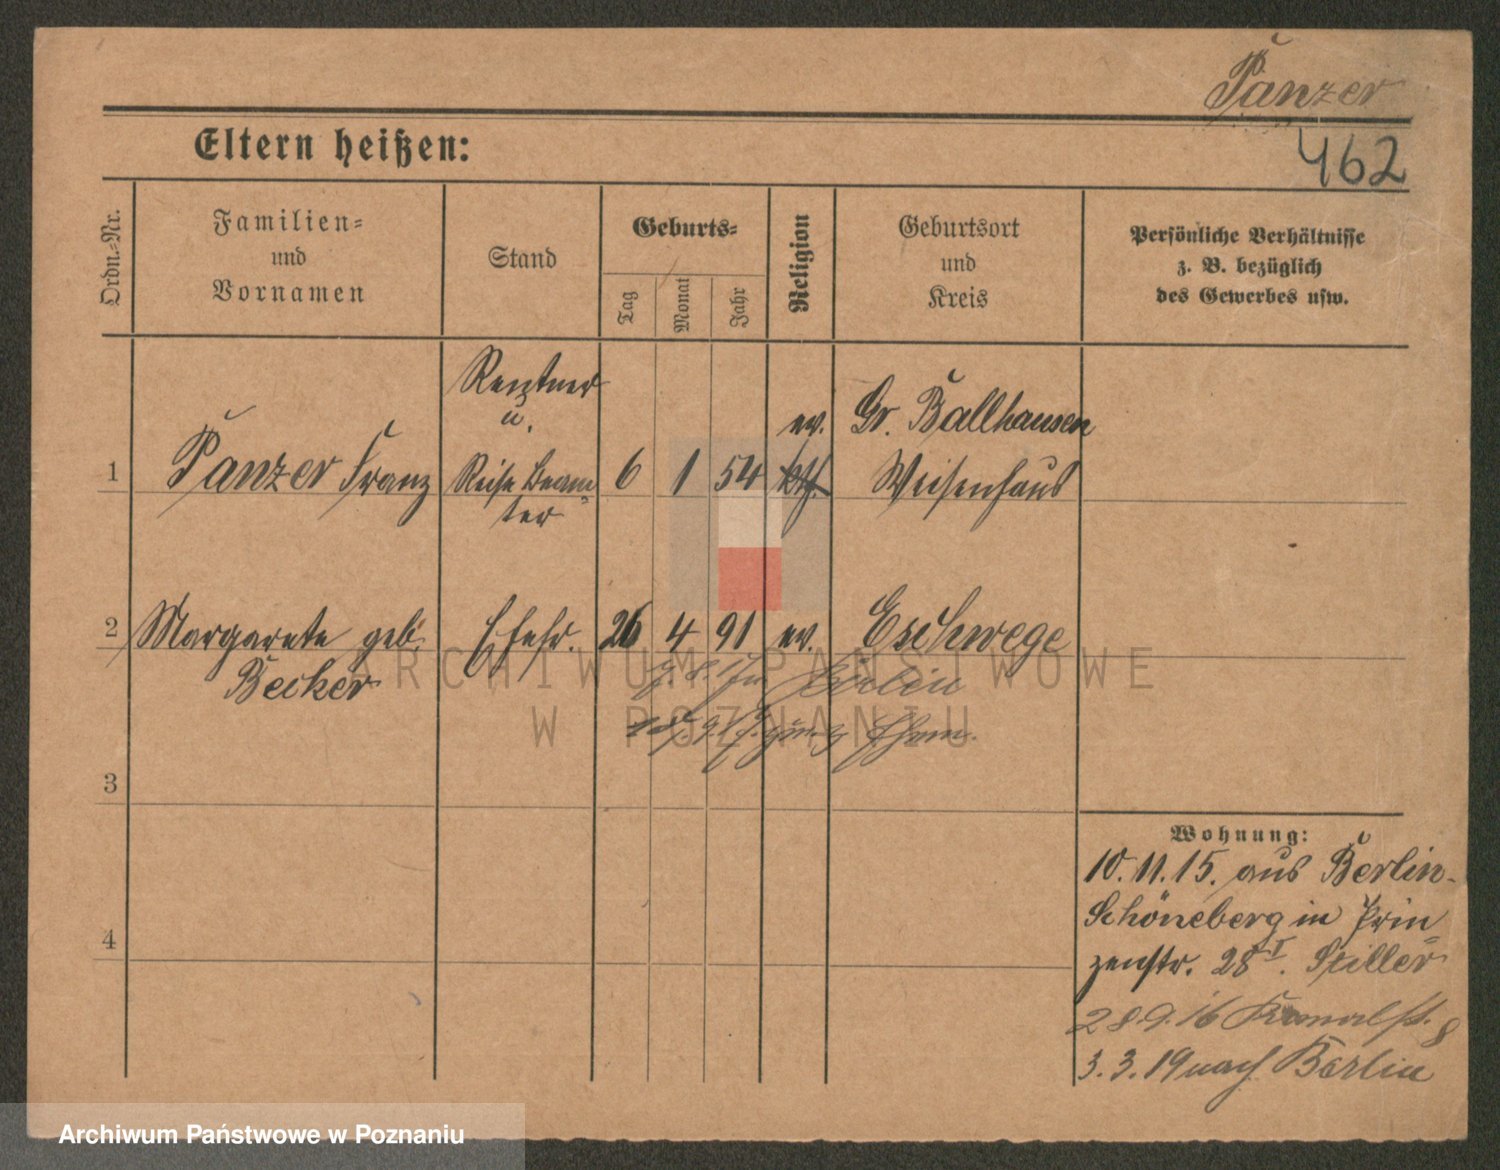 Panzer
462
Eltern heißen:
Ordn.-Nr.
Familien-
und
Vornamen
Stand
Geburts-
Tag
Monat
Jahr
Religion
Geburtsort
und
Kreis
Persönliche Verhältnisse
z. B. bezüglich
des Gewerbes usw.
Rentner
u.
1 Panzer Franz Reise Beam-
ter
6 1 54
ev.
kth.
Gr. Ballhausen
Weisenhaus
2 Margarete geb. Ehefr. 26 4 91 ev. Eschwege
Becker
in Berlin
3
4
Wohnung:
10.11.15. aus Berlin-
Schöneberg in Prin-
zenstr. 28 I. Stiller
28.9.16 Kanalst. 8
3.3.19 nach Berlin
ARCHIWUM PAŃSTWOWE
W POZNANIU
Archiwum Państwowe w Poznaniu